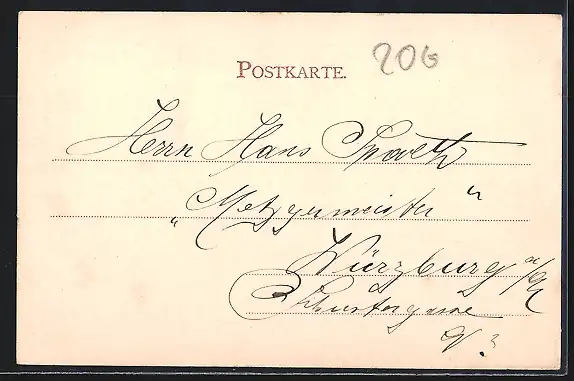 POSTKARTE.
206
Herrn Hans Spaeth
"Metzgermeister"
Würzburg a/M
Schustergasse
N. 3